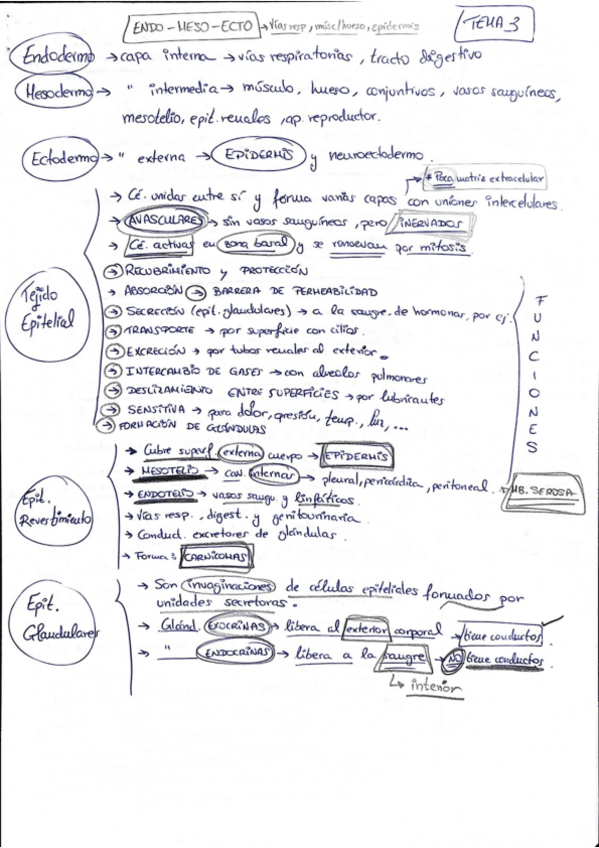 ENDO-MESO-ECTO → vías resp, músc/hueso, epidermis
TEMA 3
Endodermo → capa interna → vías respiratorias, tracto digestivo
Mesodermo → " intermedia → músculo, hueso, conjuntivos, vasos sanguíneos,
mesotelio, epit. renales, ap. reproductor.
Ectodermo → " externa → EPIDERMIS y neuroectodermo.
* Poca matriz extracelular
Tejido Epitelial
→ Cé. unidas entre sí y forma varias capas con uniones intercelulares.
→ AVASCULARES → sin vasos sanguíneos, pero INERVADOS
→ Cé. activas en zona basal y se renuevan por mitosis
→ RECUBRIMIENTO y PROTECCIÓN
→ ABSORCIÓN → BARRERA DE PERMEABILIDAD
→ SECRECIÓN (epit. glandulares) → a la sangre. de hormonas, por ej.
→ TRANSPORTE → por superficie con cilios.
→ EXCRECIÓN → por tubos renales al exterior.
→ INTERCAMBIO DE GASES → con alveolos pulmonares
→ DESLIZAMIENTO ENTRE SUPERFICIES → por lubricantes
→ SENSITIVA → para dolor, presión, temp., luz, ...
→ FORMACIÓN DE GLÁNDULAS
FUNCIONES
Epit. Revestimiento
→ Cubre superf. externa cuerpo → EPIDERMIS
→ MESOTELIO → cav. internas → pleural, pericárdica, peritoneal. → MB. SEROSA
→ ENDOTELIO → vasos sangu. y linfáticos.
→ Vías resp., digest. y genitourinaria.
→ Conduct. excretores de glándulas.
→ Forma: CARNICOMAS
Epit. Glandulares
→ Son invaginaciones de células epiteliales formados por
unidades secretoras.
→ Glánd. EXOCRINAS → libera al exterior corporal → tiene conductos
→ " ENDOCRINAS → libera a la sangre → NO tiene conductos.
↳ interior